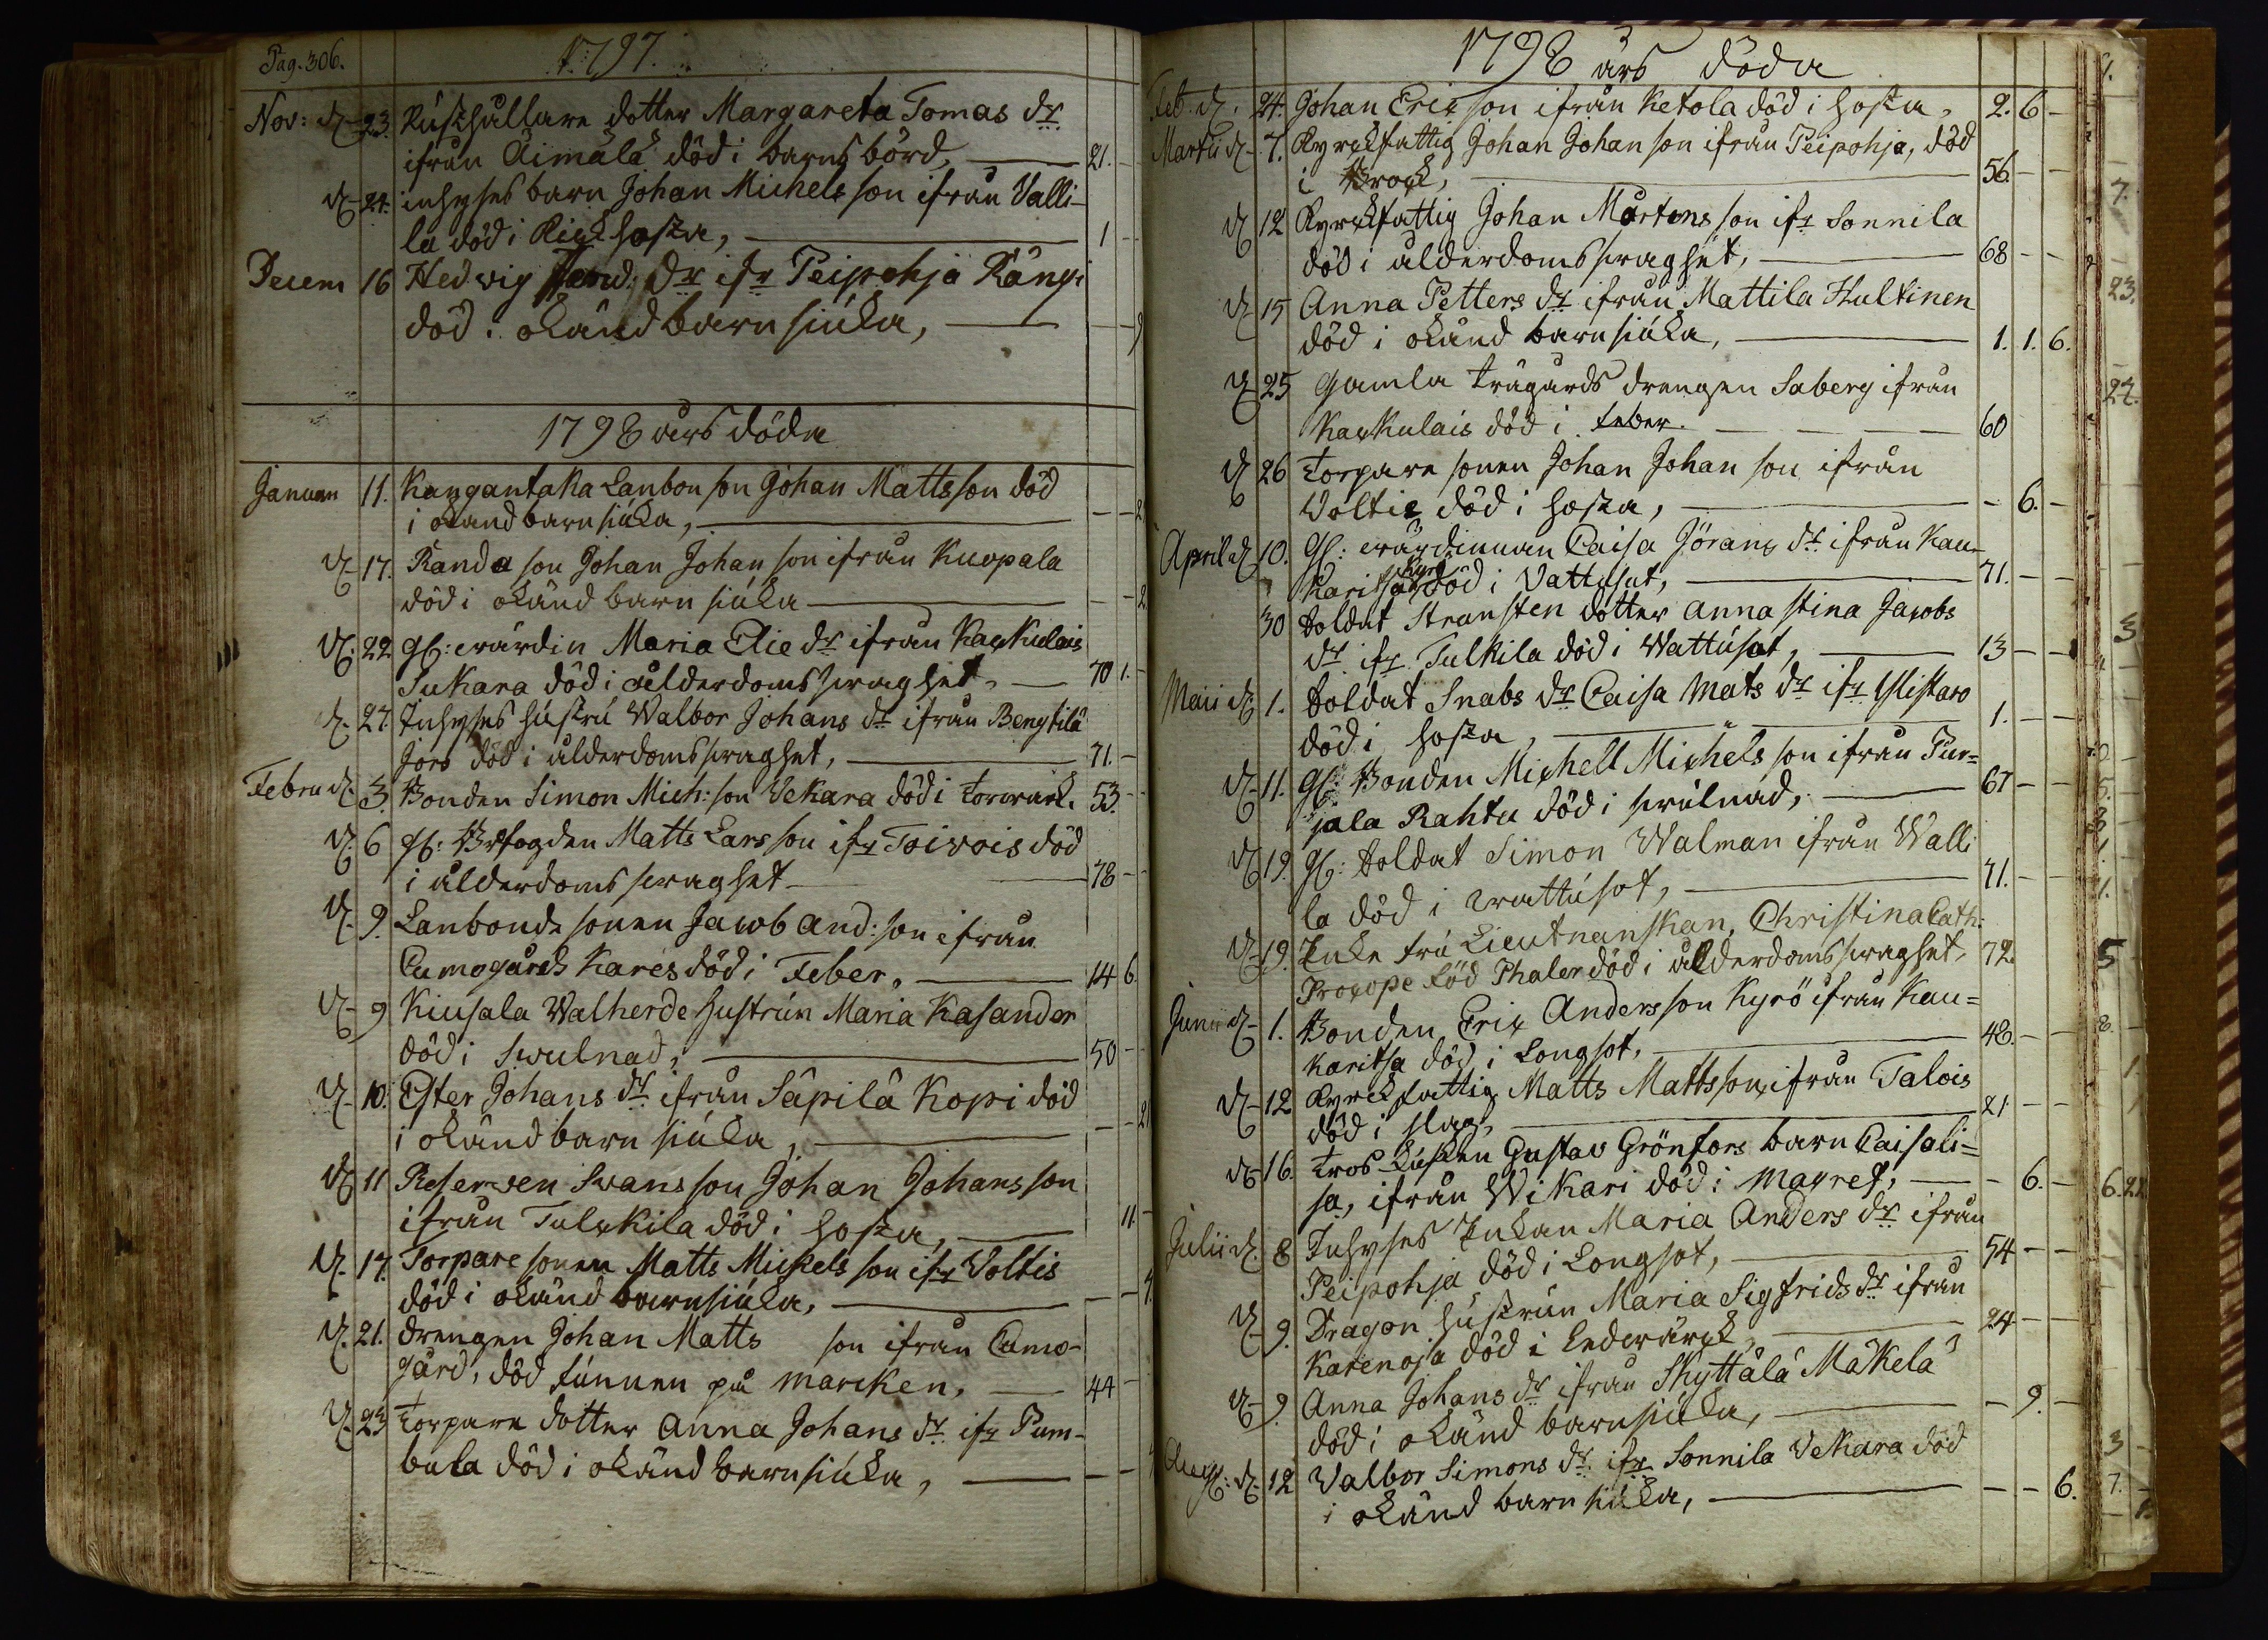 Pag. 306.
1797.
Nov: d. 23. Rusthållare dotter Margareta Tomas dr
ifrån Äimälä död i barns börd, 21. -
d. 24. inhyses barn Johan Michels son ifrån Valli-
la död i Kickhosta, 1 -
Decem 16 Hedvig And: dr ifr Peipohja Rängi
död i okänd barnsiuka, - - 9
1798 års döda
Januari 11. Kangantaka Lanbon son Johan Matts son död
i okänd barnsiuka, - - 2
d. 17. Randa son Johan Johan son ifrån Kuopala
död i okänd barnsiuka - - 2
d. 22 gl: värdin Maria Elie dr ifrån Kackulais
Sukara död i ålderdomsswaghet, 70 1. -
d. 27. Inhyses hustru Walbor Johans dr ifrån Bengtilä
Jors död i ålderdomsswaghet, 71. -
Febru d. 3. Bonden Simon Mich: son Vekara död i torrwärk. 53. -
d. 6 gl: Brfogden Matts Lars son ifr Toivois död
i ålderdoms swaghet 78 -
d. 9. Lanbonds sonen Jacob And: son ifrån
Cumogårds Kares död i Feber, 14 6.
d. 9 Kiusala Walherde hustrun Maria Kasander
död i swulnad, 50 -
d. 10. Ester Johans dr ifrån Säpilä Kopi död
i okänd barn siuka, - - 21
d. 11 Reserwen Svans son Johan Johans son
ifrån Tulckila död i hosta, 11 -
d. 17. Torpare sonen Matts Mickels son ifr Voltis
död i okänd barnsiuka, - -
d. 21. drengen Johan Matts son ifrån Cumo-
gård, död funnen på marcken, 44 -
d. 23 Torpare dotter Anna Johans dr ifr Pum-
bula död i okänd barnsiuka, - -
1798 års döda
Feb. d. 24. Johan Eric son ifrån Ketola död i hosta, 2. 6 -
Martii d. 7. Kyrckfattig Johan Johan son ifrån Peipohja, död
i Brock, 56. - -
d. 12 Kyrckfattig Johan Mårtens son ifr Sonnila
död i ålderdomsswaghet, 68 - -
d. 15 Anna Petters dr ifrån Mattila Hultinen
död i okänd barnsiuka, 1. 1. 6.
d. 25 Gamla trägårds drengen Saberg ifrån
Kackulais död i feber. 60
d. 26 torpare sonen Johan Johan son ifrån
Voltis död i hosta, - 6. -
April d. 10. Gl: wärdinnan Caisa Jörans dr ifrån Kau-
karitsa Kyrö död i Vattusot, 71. - -
30 Soldat Stransten dotter Anna Stina Jacobs
dr ifr Tulkila död i Wattusot, 13 - -
Maii d. 1. Soldat Snabs dr Caisa Mats dr ifr Ylistaro
död i hosta, 1. - -
d. 11. gl: Bonden Michell Michels son ifrån Pur=
jala Rahtu död i swulnad, 67 - -
d. 19. gl: Soldat Simon Walman ifrån Walli
la död i wattusot, 71. - -
d. 19. Enke fru Lieutnanskan, Christina Cath:
Procope född Thaler död i ålderdomsswaghet, 72.
Junii d. 1. Bonden Eric Anders son Kyrö ifrån Kau=
karitsa död i Longsot, 48. - -
d. 12 Kyrckfattig Matts Matts son ifrån Talois
död i slag, 21 - -
d. 16. Tros kusken Gustav Grönfors barn Caisali=
sa, ifrån Wikari död i Magref, - 6. -
Julii d. 8 Inhyses Enkan Maria Anders dr ifrån
Peipohja död i Longsot, 54 - -
d. 9. Dragon hustrun Maria Sigfrids dr ifrån
Karenoja död i Ledwärck, 24 - -
d. 9. Anna Johans dr ifrån Skyttälä Mäkelä
död i okänd barnsiuka, - 9. -
Aug: d. 12 Valbor Simons dr ifr Sonnila Vekara död
i okänd barn siuka, - - 6.